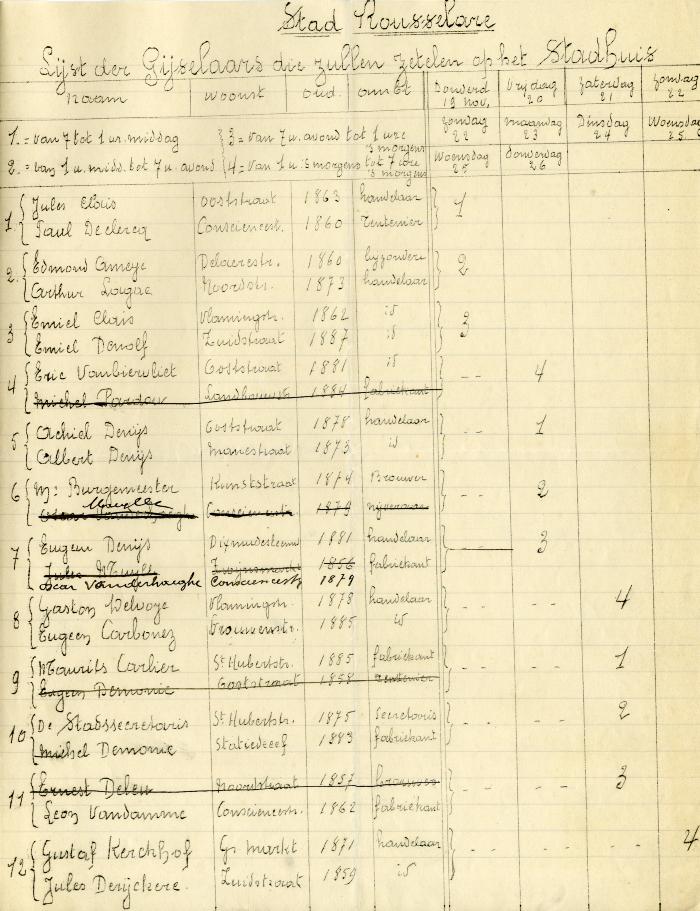 Stad Rousselare
Lijst der Gijselaars die zullen zetelen op het Stadhuis
Naam Woonst Oud. ambt Donderd 19 nov. Vrijdag 20 Zaterdag 21 Zondag 22
Zondag 22 maandag 23 Dinsdag 24 Woensdag 25
Woensdag 25 donderdag 26
1. = van 7 tot 1 ur. middag 3 = van 7 u. avond tot 1 ure 's morgens
2. = van 1 u. midd. tot 7 u. avond 4 = van 1 u. 's morgens tot 7 ure 's morgens
1 Jules Clais Ooststraat 1863 handelaar 1
Paul Declercq Consciencest. 1860 rentenier
2 Edmond Ameye Delaerestr. 1860 bijzondere 2
Arthur Lagae Noordstr. 1873 handelaar
3 Emiel Clais Vlamingstr. 1862 id 3
Emiel Denolf Zuidstraat 1887 id
4 Eric Vanbiervliet Ooststraat 1881 id - - 4
Michel Pardon 1884 fabriekant
5 Achiel Denijs Ooststraat 1878 handelaar 1
Albert Denijs 1873 id
6 Mr Burgemeester Kunststraat 1874 Brouwer - - 2
1879
7 Eugeen Denijs Dixmudesteenw 1881 handelaar 3
Jules 1856 fabriekant
Oscar Vanderhaeghe Consciencestr 1879
8 Gaston Delvoye Vlamingstr. 1878 handelaar - - - - 4
Eugeen Carbonez Vrouwenstr. 1885 id
9 Maurits Carlier St Hubertstr. 1885 fabriekant - - - - 1
Eugeen Demonie Ooststraat 1858 rentenier
10 De Stadssecretaris St Hubertstr. 1875 Secretaris - - - - 2
Michel Demonie Statiedreef 1883 fabriekant
11 Ernest Deleu Noordstraat 1857 brouwer - - - - 3
Leon Vandamme Consciencestr. 1862 fabriekant
12 Gustaf Kerckhof Gr. Markt 1871 handelaar - - - - - - 4
Jules Derijckere. Zuidstraat 1859 id